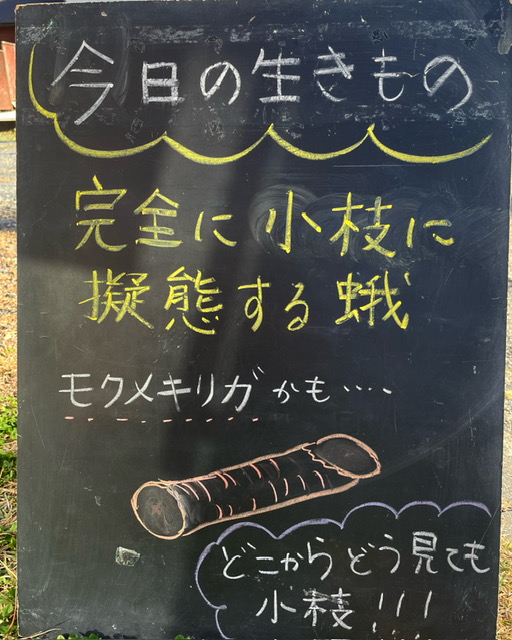 今日の生きもの
完全に小枝に
擬態する蛾
モクメキリガかも‥‥
どこからどう見ても
小枝!!!